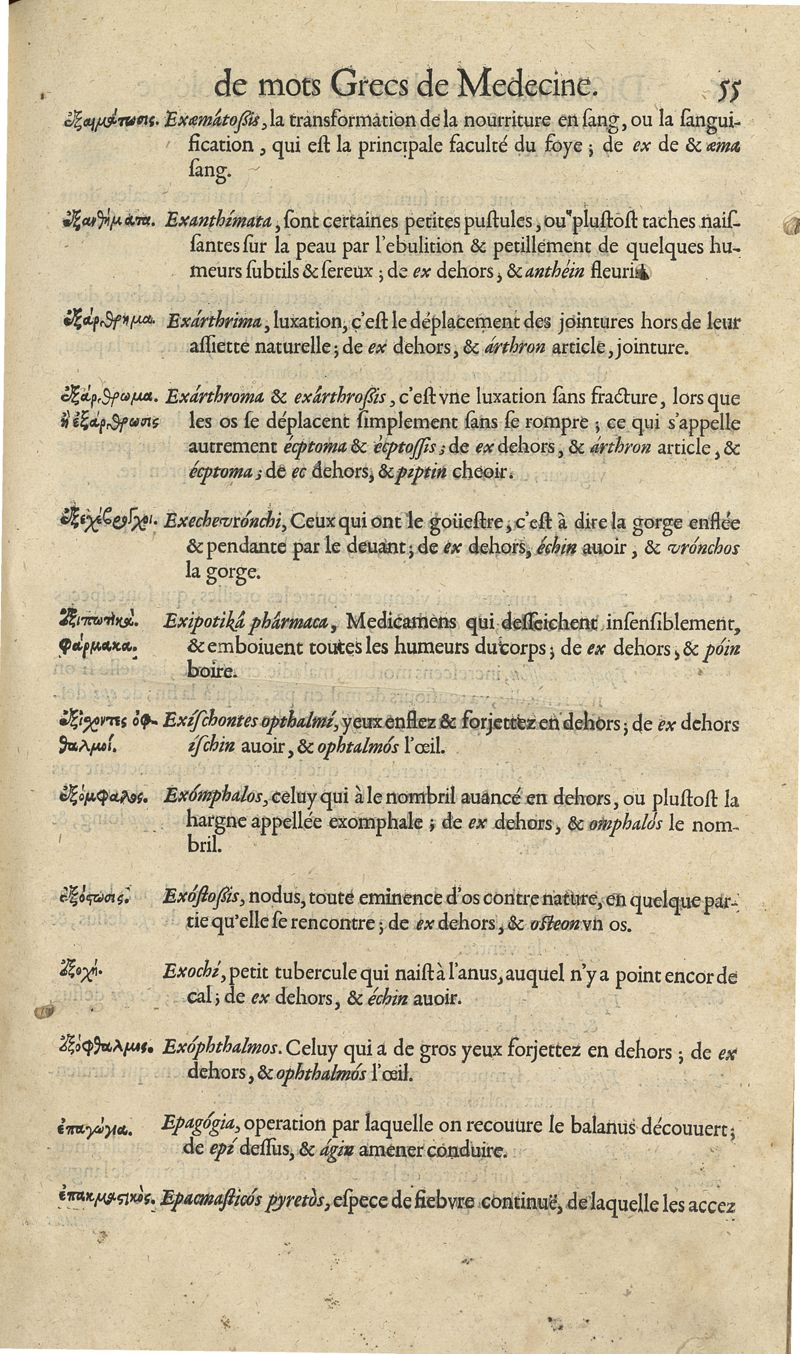 de mots Grecs de Medecine. 55
ἐξαιμάτωσις. Exæmátoſsis, la transformation de la nourriture en ſang, ou la ſangui-
fication, qui eſt la principale faculté du foye; de ex de & æma
ſang.
ἐξανθήματα. Exanthímata, ſont certaines petites puſtules, ou pluſtoſt taches naiſ-
ſantes ſur la peau par l'ebulition & petillement de quelques hu-
meurs ſubtils & ſereux; de ex dehors, & anthéin fleurir
ἐξάρθρημα. Exárthrima, luxation, c'eſt le déplacement des jointures hors de leur
aſſiette naturelle; de ex dehors, & árthron article, jointure.
ἐξάρθρωμα. Exárthroma & exárthroſsis, c'eſt vne luxation ſans fracture, lors que
ἢ ἐξάρθρωσις les os ſe déplacent ſimplement ſans ſe rompre; ce qui s'appelle
autrement écptoma & écptoſsis; de ex dehors, & árthron article, &
écptoma; de ec dehors, & piptin cheoir.
ἐξεχέβρογχοι. Exechevrónchi, Ceux qui ont le goüeſtre, c'eſt à dire la gorge enflée
& pendante par le deuant; de ex dehors, échin auoir, & vrónchos
la gorge.
ἐξιπωτικὰ Exipotikâ phármaca, Medicamens qui deſſeichent inſenſiblement,
φάρμακα. & emboiuent toutes les humeurs du corps; de ex dehors, & póin
boire.
ἐξίχοντες ὀφ- Exiſchontes opthalmí, yeux enflez & forjettez en dehors; de ex dehors
θαλμοί. iſchin auoir, & ophtalmós l'œil.
ἐξόμφαλος. Exómphalos, celuy qui à le nombril auancé en dehors, ou pluſtoſt la
hargne appellée exomphale; de ex dehors, & omphalós le nom-
bril.
ἐξόστωσις. Exóſtoſsis, nodus, toute eminence d'os contre nature, en quelque par-
tie qu'elle ſe rencontre; de ex dehors, & oſteon vn os.
ἐξοχή. Exochí, petit tubercule qui naiſt à l'anus, auquel n'y a point encor de
cal; de ex dehors, & échin auoir.
ἐξόφθαλμος. Exóphthalmos. Celuy qui a de gros yeux forjettez en dehors; de ex
dehors, & ophthalmós l'œil.
ἐπαγώγια. Epagógia, operation par laquelle on recouure le balanus découuert;
de epí deſſus, & ágin amener conduire.
ἐπακμαστικὸς. Epacmaſticós pyretòs, eſpece de fiebvre continuë, de laquelle les accez